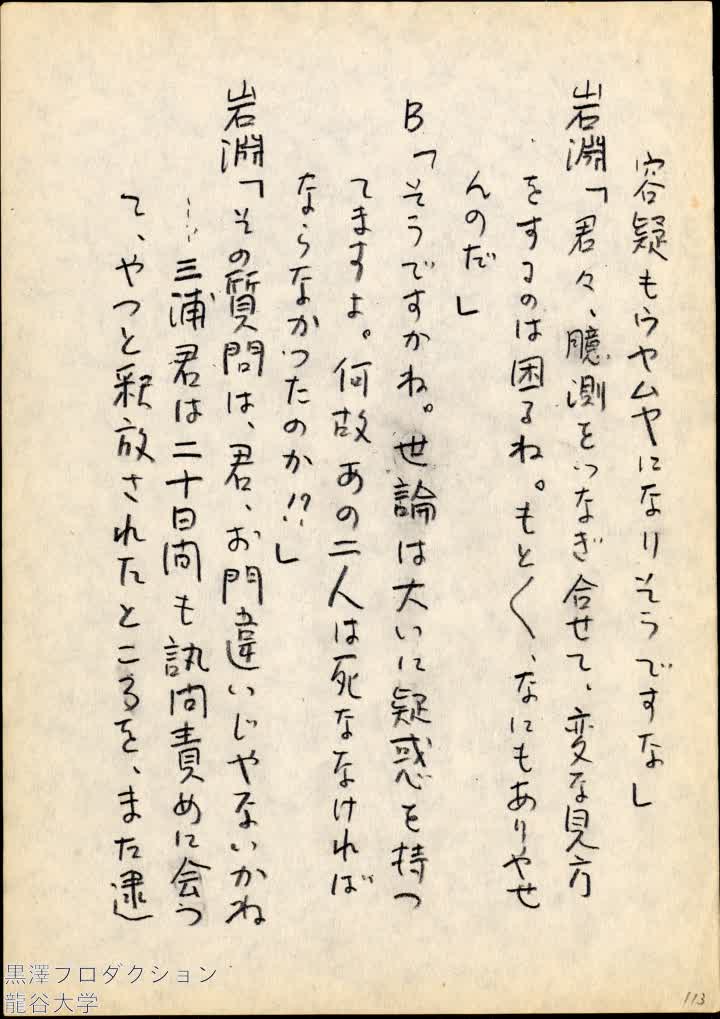 容疑もウヤムヤになりそうですな」
岩淵「君々、臆測をつなぎ合せて、変な見方
をするのは困るね。もと〱、なにもありやせ
んのだ」
B「そうですかね。世論は大いに疑惑を持つ
てますよ。何故あの二人は死なゝければ
ならなかつたのか!?」
岩淵「その質問は、君、お門違いじやないかね
……三浦君は二十日間も訊問責めに会つ
て、やつと釈放されたところを、また逮
黒澤プロダクション
龍谷大学
113